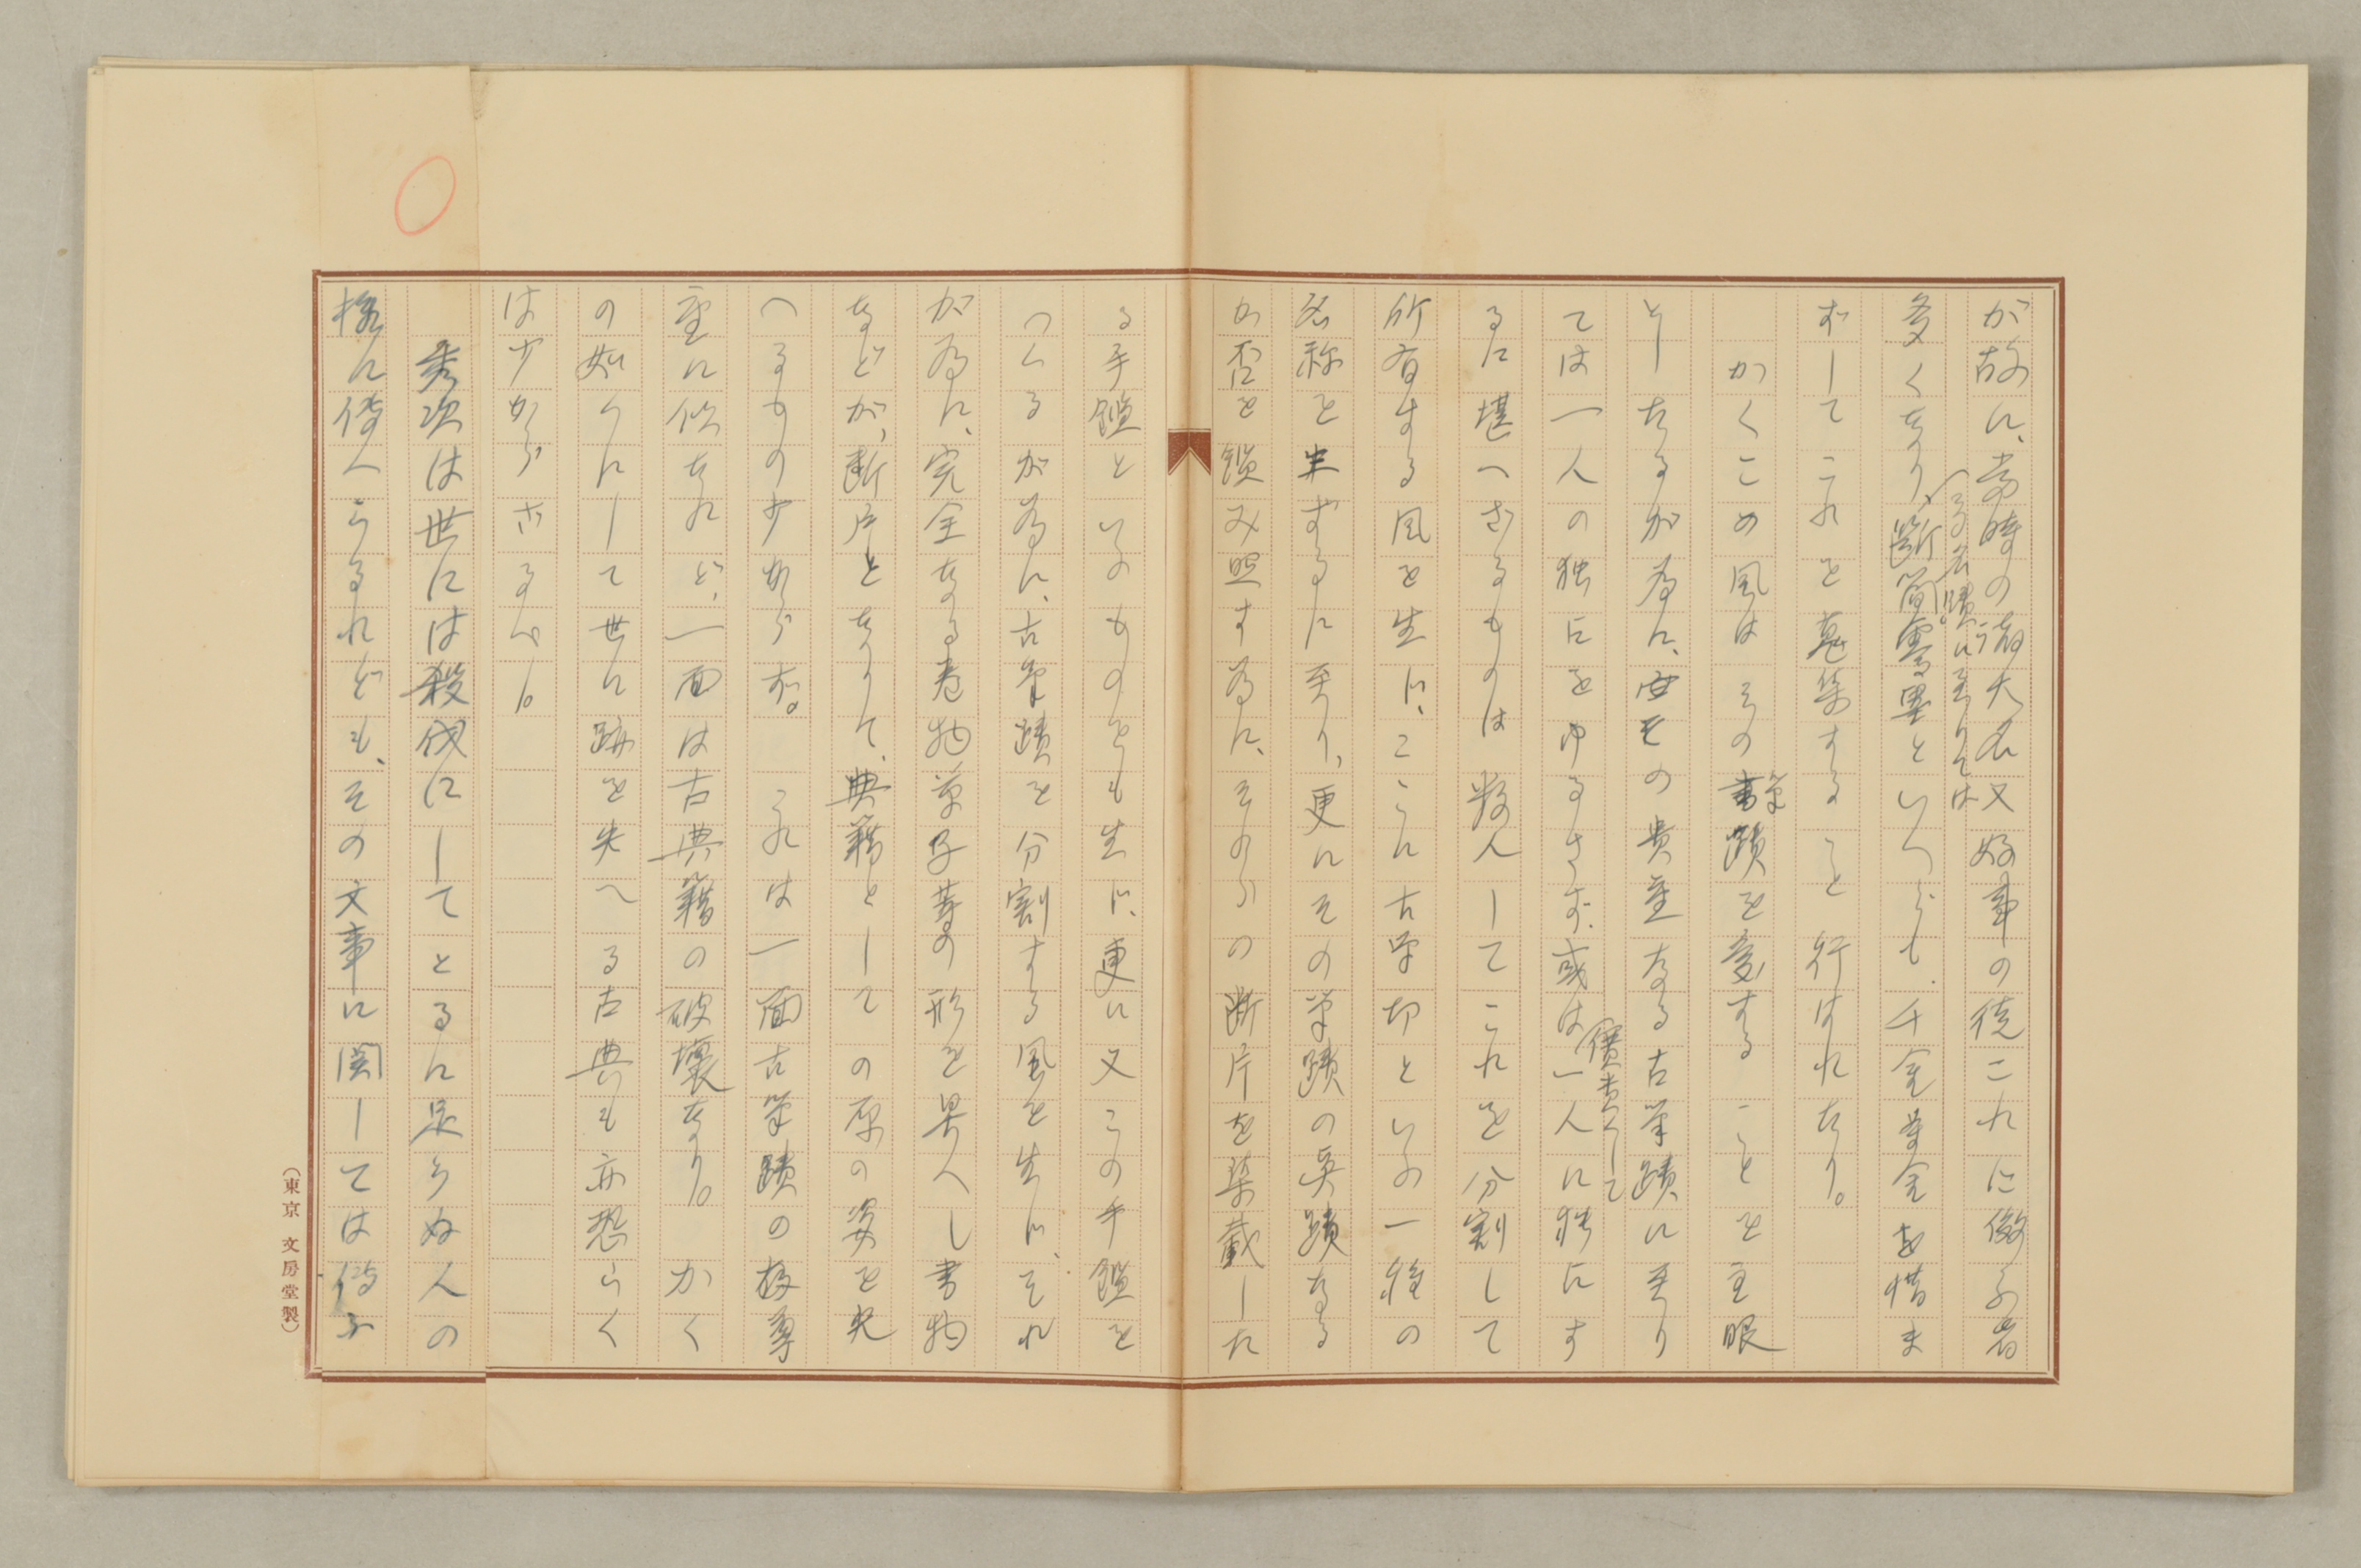 が故に、当時の諸大名又好事の徒これに倣ふ者
多くなり、断簡零墨といへども、千金万金を惜ま
る名蹟に至りては
ずしてこれを蒐集すること行はれたり。
かくこの風はその筆蹟を愛することを主眼
としたるが為に、その貴重なる古筆蹟に至り
ては一人の独占をゆるさず、或は一人に独占す
価貴くして
るに堪へざるものは数人してこれを分割して
所有する風を生じ、ここに古筆切といふ一種の
名称を生ずるに至り、更にその筆蹟の真蹟なる
か否を鑑み照す為に、それらの断片を集蔵した
る手鑑といふものをも生じ、更に又この手鑑を
つくるが為に、古筆蹟を分割する風を生じ、それ
が為に、完全なる巻物草子等の形を異へし書物
などが、断片となりて、典籍としての原の姿を失
へるもの少からず。これは一面古筆蹟の極尊
重に似たれど、一面は古典籍の破壊なり。かく
の如くにして世に跡を失へる古典も亦恐らく
は少からざるべし。
秀次は世には殺伐にしてとるに足らぬ人の
様に伝へらるれども、その文事に関しては伝ふ
（東京 文房堂製）